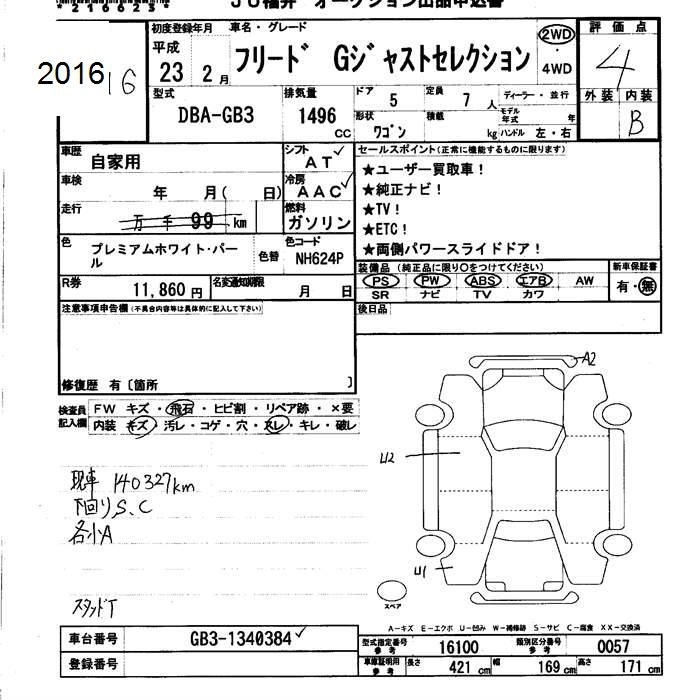 *216623*
JU福井 オークション出品申込書
2016 16
初度登録年月 平成 23 2月
車名・グレード フリード Gジャストセレクション
2WD 4WD
評価点 4
外装 内装 B
型式 DBA-GB3
排気量 1496 CC
ドア 5 定員 7 人 ディーラー・並行
形状 ワゴン 積載 kg モデル年式 年
ハンドル 左・右
車歴 自家用
シフト AT✓
車検 年 月( 日)
冷房 AAC✓
走行 万 千 99 km
燃料 ガソリン
色 プレミアムホワイト・パール
色替
色コード NH624P
R券 11,860 円
名変通知期限 月 日
セールスポイント(正常に機能するものに限ります)
★ユーザー買取車!
★純正ナビ!
★TV!
★ETC!
★両側パワースライドドア!
装備品 (純正品に限り○をつけてください)
PS PW ABS エアB AW
SR ナビ TV カワ
新車保証書 有・無
後日品
注意事項申告欄(不具合内容等は具体的に記入して下さい)
修復歴 有〔箇所 〕
検査員記入欄
FW キズ・飛石・ヒビ割・リペア跡・×要
内装 キズ・汚レ・コゲ・穴・スレ・キレ・破レ
現車 140327km
下回りS、C
各小A
スタッドT
A2
U2
U1
スペア
A-キズ E-エクボ U-凹み W-補修跡 S-サビ C-腐食 XX-交換済
車台番号 GB3-1340384✓
登録番号
型式指定番号 参考 16100 類別区分番号 参考 0057
車庫証明用 参考 長さ 421 cm 幅 169 cm 高さ 171 cm